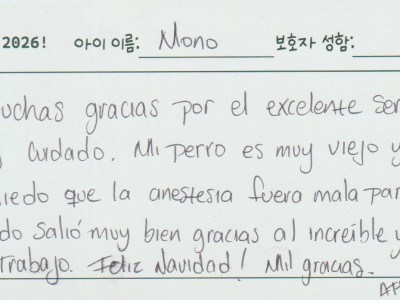 2026! 아이 이름: Mono 보호자 성함:
uchas gracias por el excelente ser
y cuidado. Mi perro es muy viejo y
iedo que la anestesia fuera mala par
do salió muy bien gracias al increíble y
trabajo. Feliz Navidad! Mil gracias.